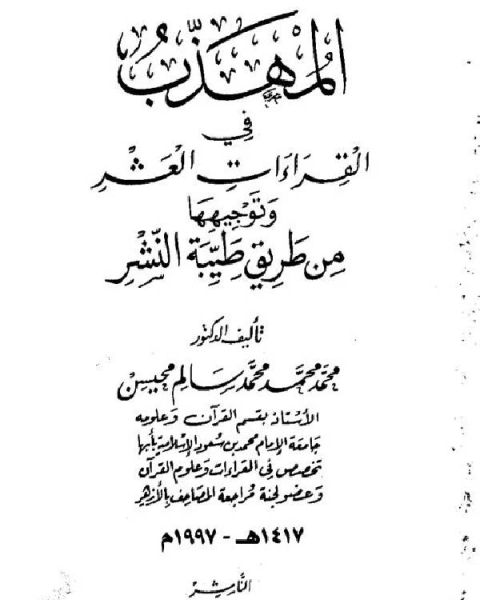 المُهَذَّبُ
في
القِرَاءَاتِ العَشْرِ
وَتَوْجِيهِهَا
مِن طَرِيقِ طَيِّبَةِ النَّشْرِ
تأليف الدكتور
محمد محمد محمد سالم محيسن
الأستاذ بقسم القرآن وعلومه
جامعة الإمام محمد بن سعود الإسلامية بأبها
تخصص في القراءات وعلوم القرآن
وعضو لجنة مراجعة المصاحف بالأزهر
١٤١٧هـ - ١٩٩٧م
الناشر